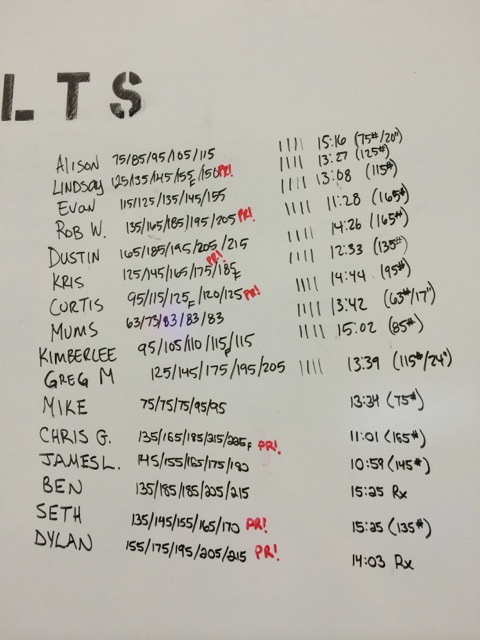 LTS
ALISON 75/85/95/105/115 |||| 15:16 (75#/20")
LINDSAY 125/135/145/155F/150 PR! |||| 13:27 (125#)
EVAN 115/125/135/145/155 |||| 13:08 (115#)
ROB W. 135/165/185/195/205 PR! |||| 11:28 (165#)
DUSTIN 165/185/195/205/215 PR! |||| 14:26 (165#)
KRIS 125/145/165/175/185F |||| 12:33 (135#)
CURTIS 95/115/125F/120/125 PR! |||| 14:44 (95#)
MUMS 63/73/83/83/83 |||| 13:42 (63#/17")
KIMBERLEE 95/105/110/115F/115 |||| 15:02 (85#)
GREG M 125/145/175/195/205 |||| 13:39 (115#/24")
MIKE 75/75/75/95/95 13:34 (75#)
CHRIS G. 135/165/185/215/225F PR! 11:01 (165#)
JAMES L. 145/155/165/175/190 10:59 (145#)
BEN 135/185/185/205/215 15:25 Rx
SETH 135/145/155/165/170 PR! 15:25 (135#)
DYLAN 155/175/195/205/215 PR! 14:03 Rx